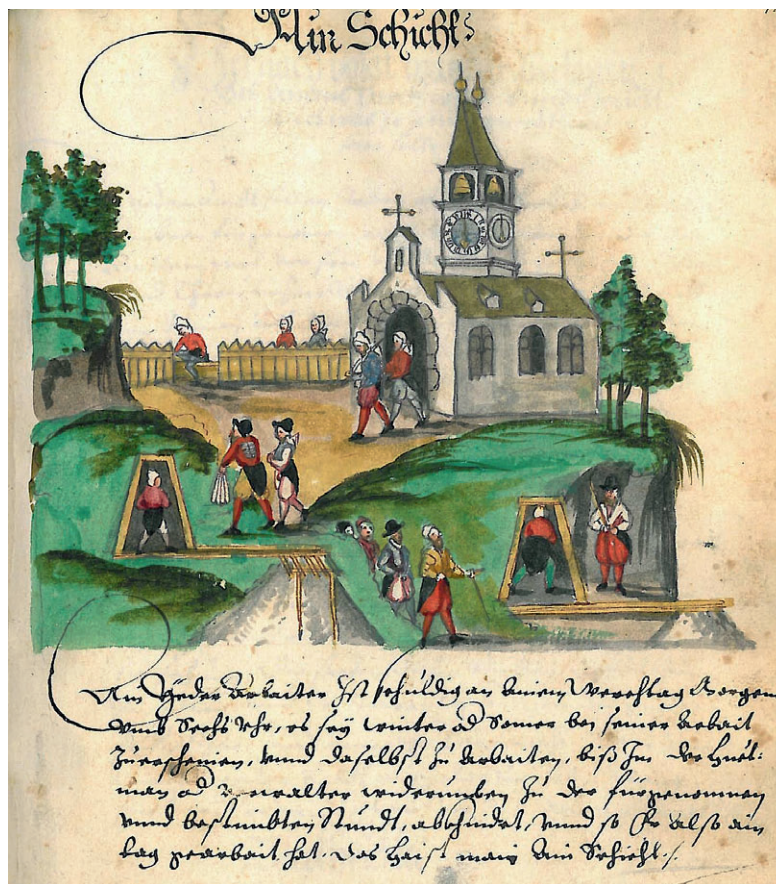 Ain Schicht
Ain Yeder Arbaiter Ist schuldig an ainem Werchtag Morgens
vmb Sechs Vhr, es sey winter od Somer bei seiner Arbait
Zuerscheinen, vnnd daselbst zu Arbaiten, biß Jm der Huet:
man od Verwalter widerumben zu der fürgenomnen
vnnd bestimbten Stundt, abschindt, vnnd so Er also ain
tag gearbait hat, das haist man Ain Schicht